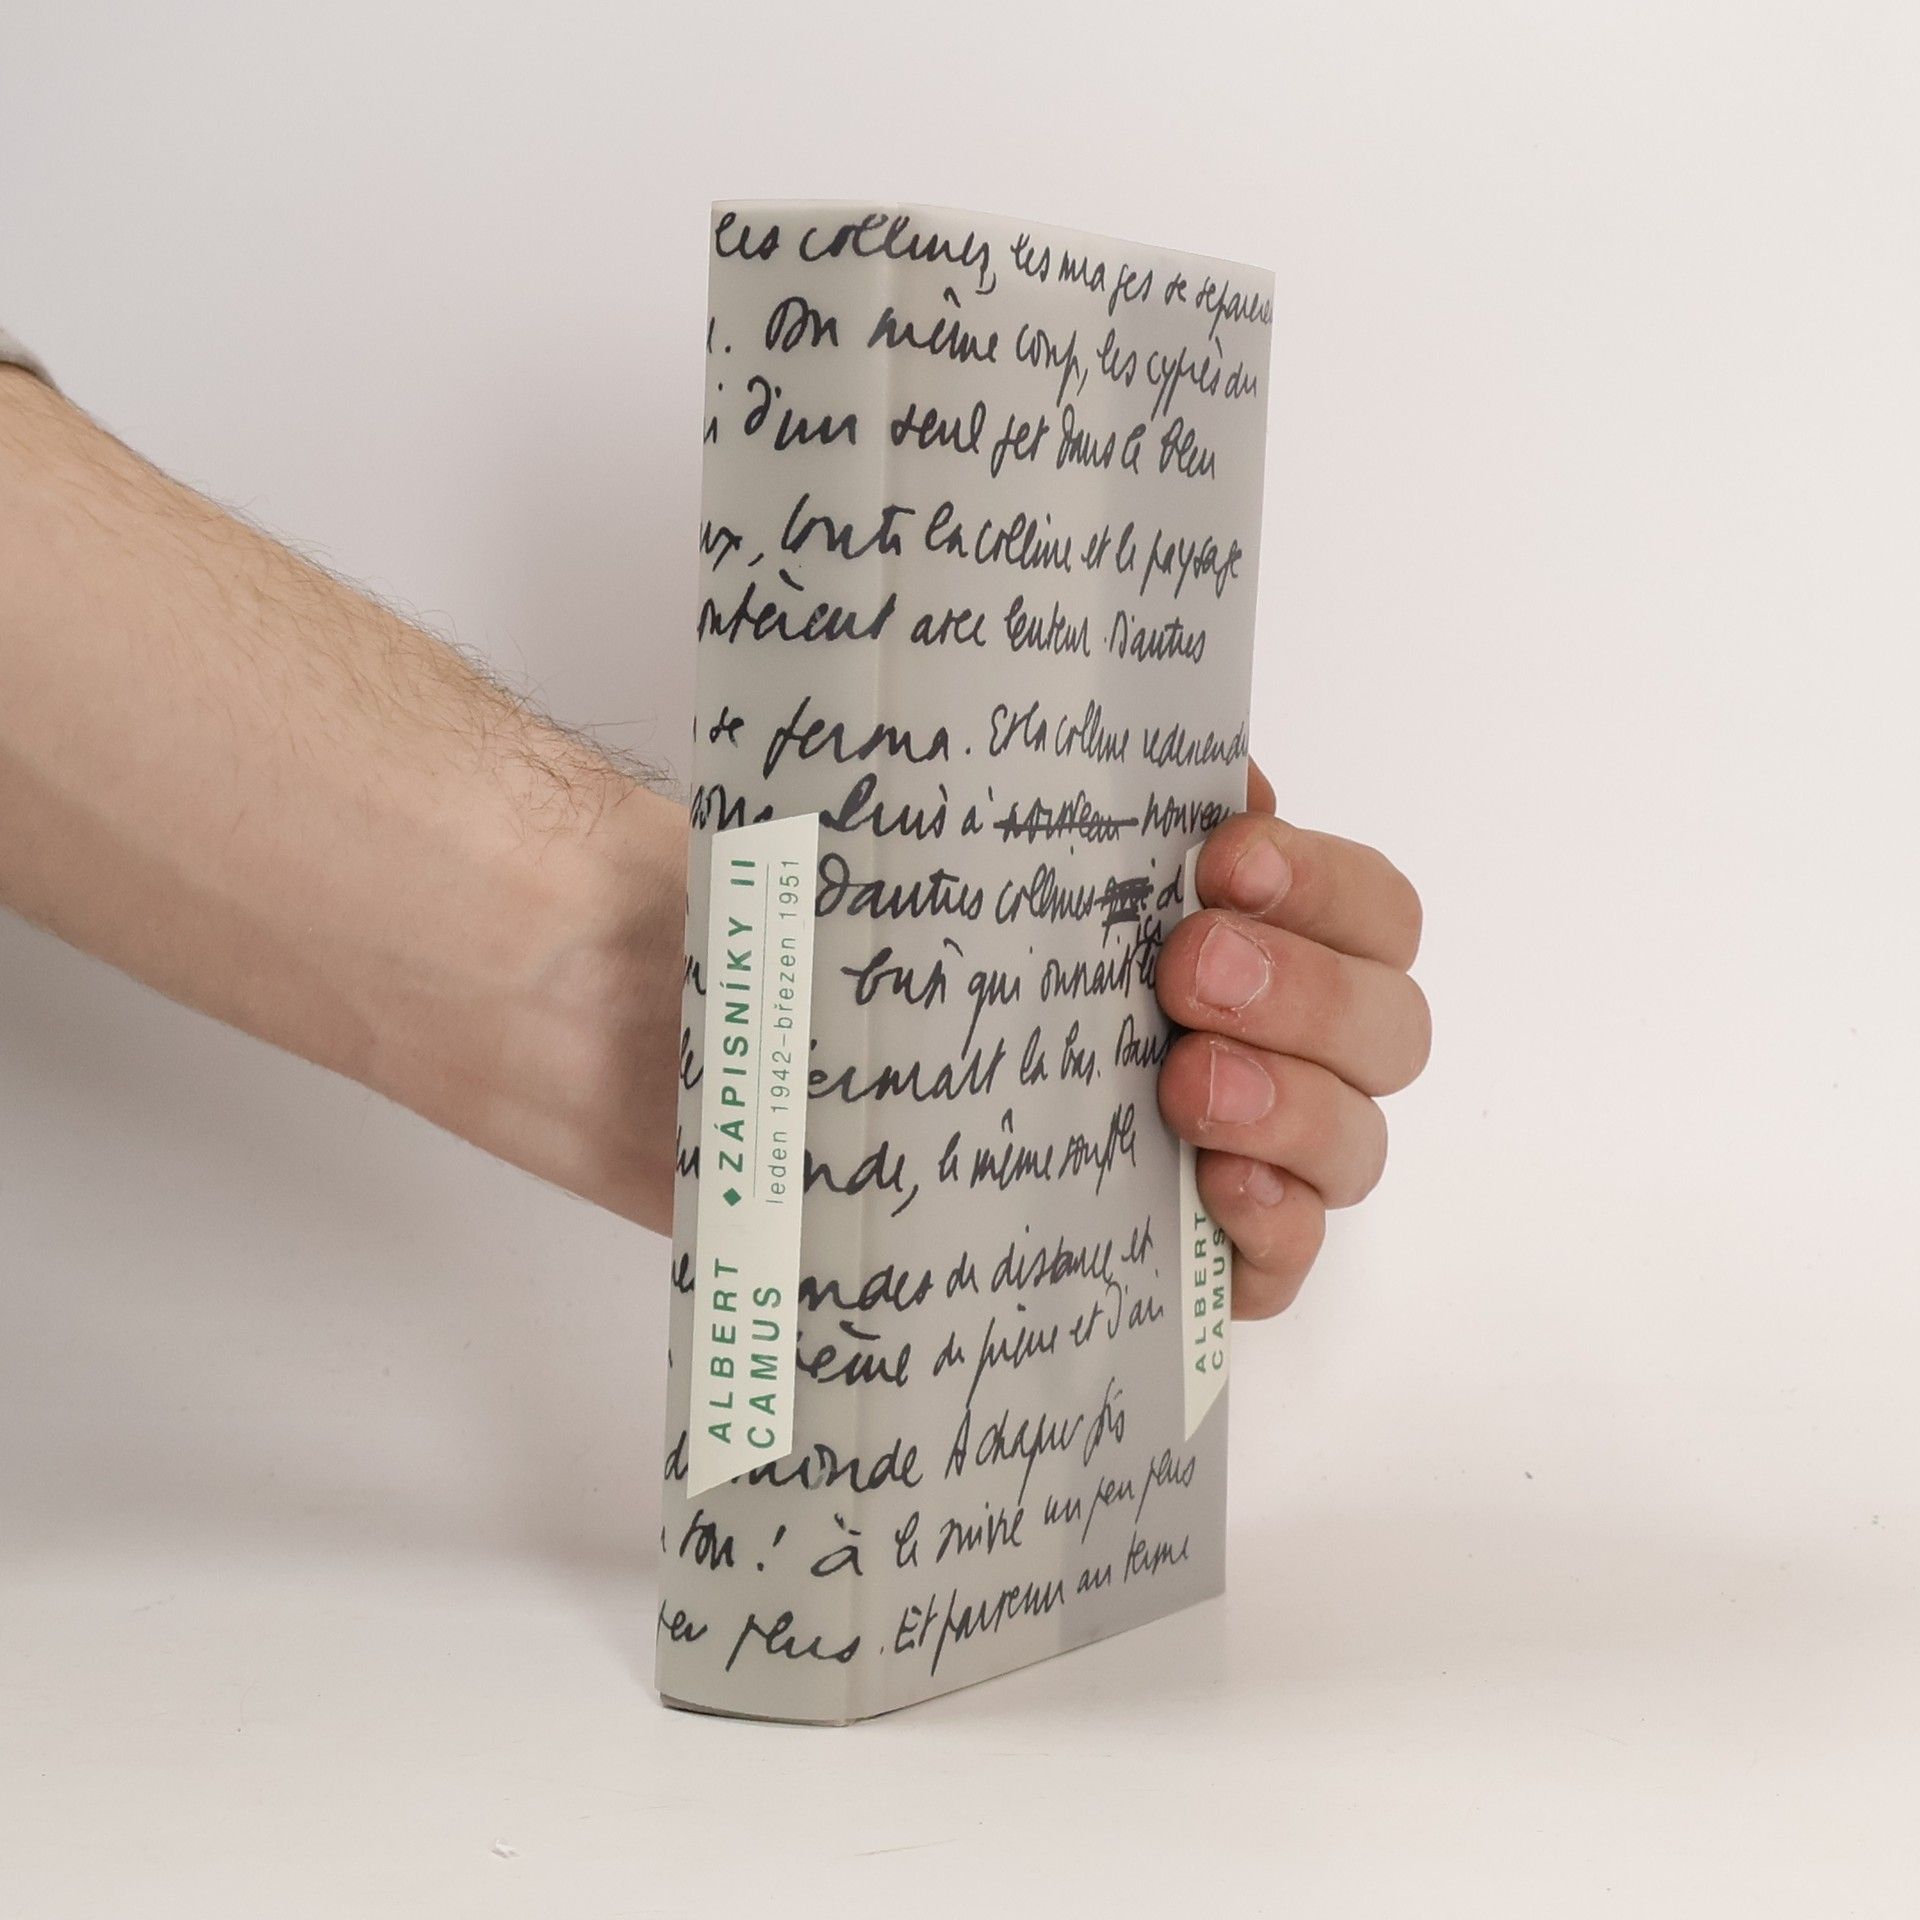 les collines, les nuages se séparèrent
. Du même coup, les cyprès du
d'un seul jet dans le bleu
ux, toute la colline et le paysage
ontèrent avec lenteur. D'autres
se ferma. Et la colline redevendi
Puis à nouveau nouveau
D'autres collines d
buste qui ouvrait les
ermait la bas. Dans
nde, le même souffle
ondes de distance et
hème de pierre et d'air
monde A chaque fois
son ! à le suivre un peu plus
peu plus. Et parvenu au terme
ALBERT CAMUS ◆ ZÁPISNÍKY II
leden 1942–březen 1951
ALBERT
CAMUS